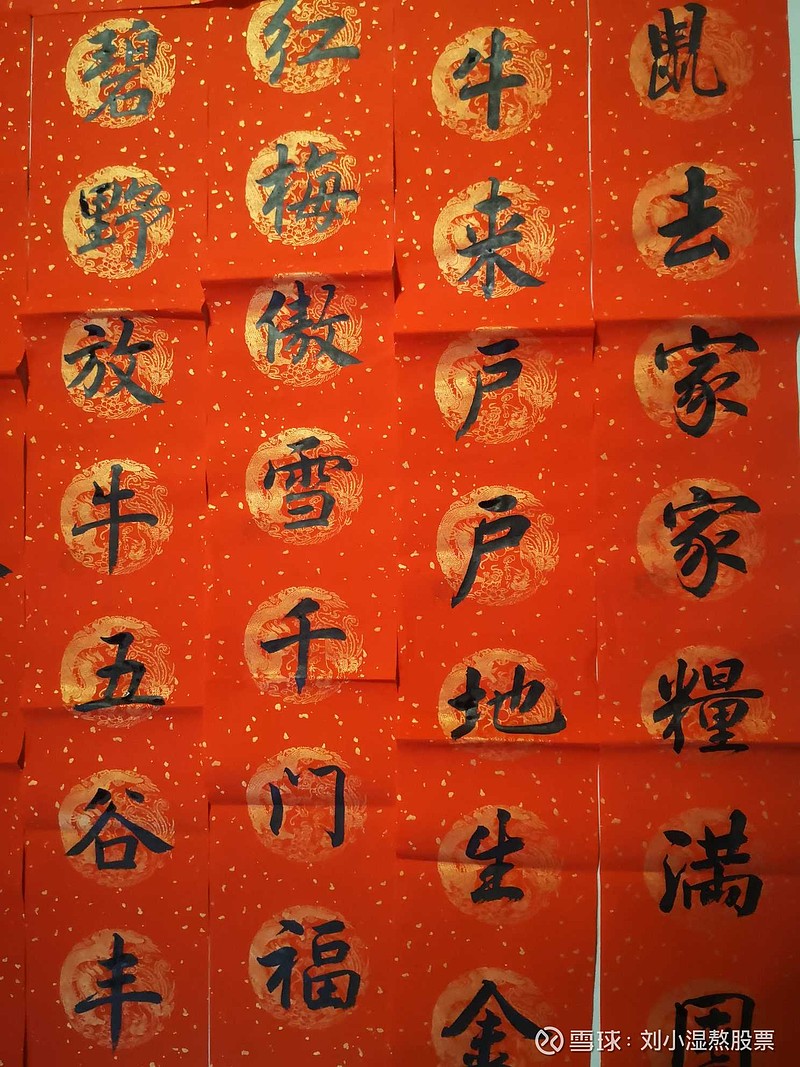 鼠去家家糧满囤
牛来户户地生金
红梅傲雪千门福
碧野放牛五谷丰
雪球：刘小湿熬股票